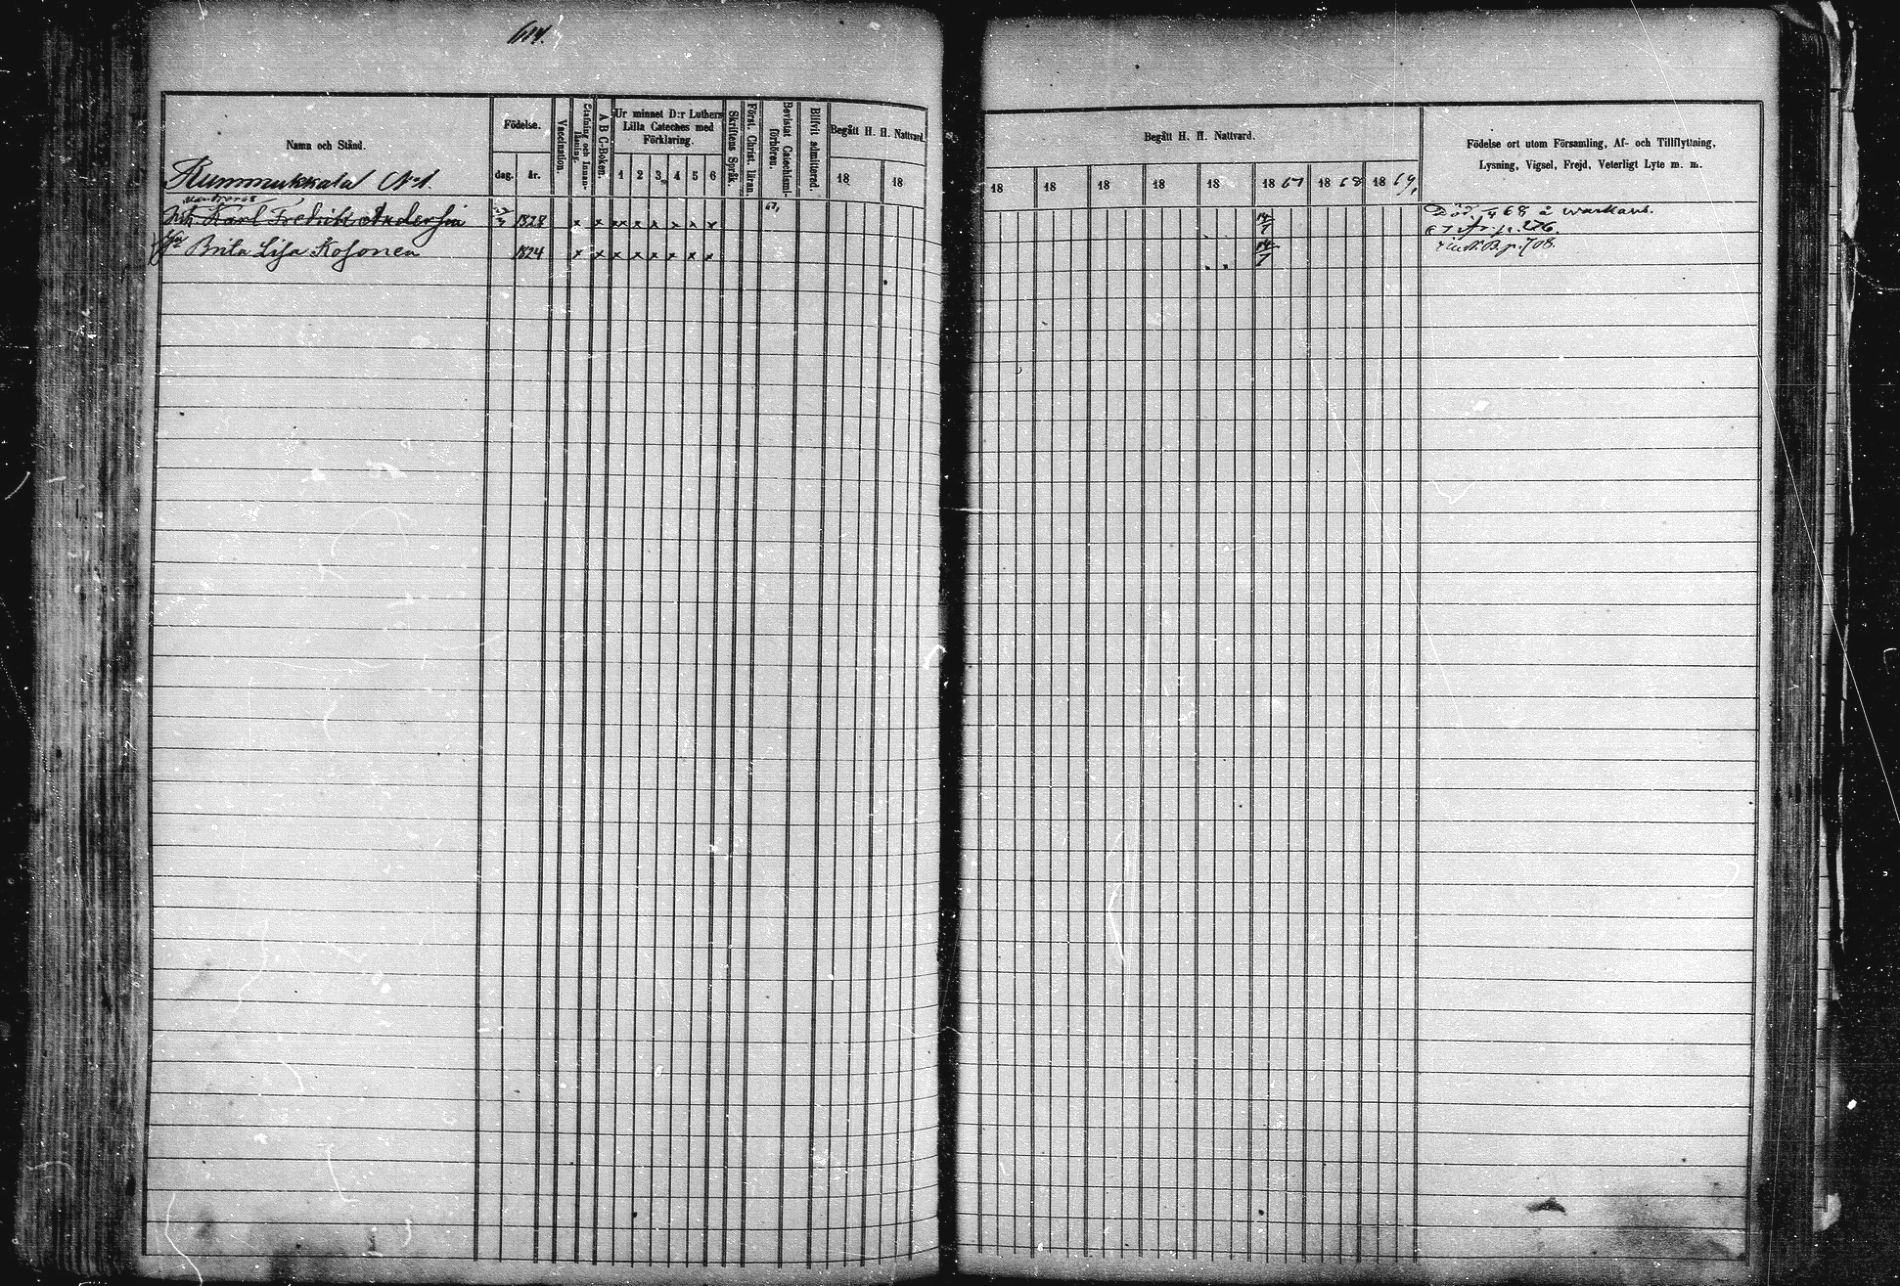 614.
Namn och Stånd.
Födelse.
dag. år.
Vaccination.
Stafning och Innanläsning.
A B C-Boken.
Ur minnet D:r Luthers
Lilla Cateches med
Förklaring.
1 2 3 4 5 6
Skriftens Språk.
Först. Christ. läran.
Bevistat Catechismi-
förhören.
Blifvit admitterad.
Begått H. H. Nattvard.
18 18
Begått H. H. Nattvard.
18 18 18 18 18 18 67 18 68 18 69,
Födelse ort utom Församling, Af- och Tillflyttning,
Lysning, Vigsel, Frejd, Veterligt Lyte m. m.
Rummukkala No 1.
67,
Karl Fredrik Andersin 1828 x x xx x x x x x Död 68 å
Brita Lisa Kosonen 1824 x x x x x x x x p. 708.